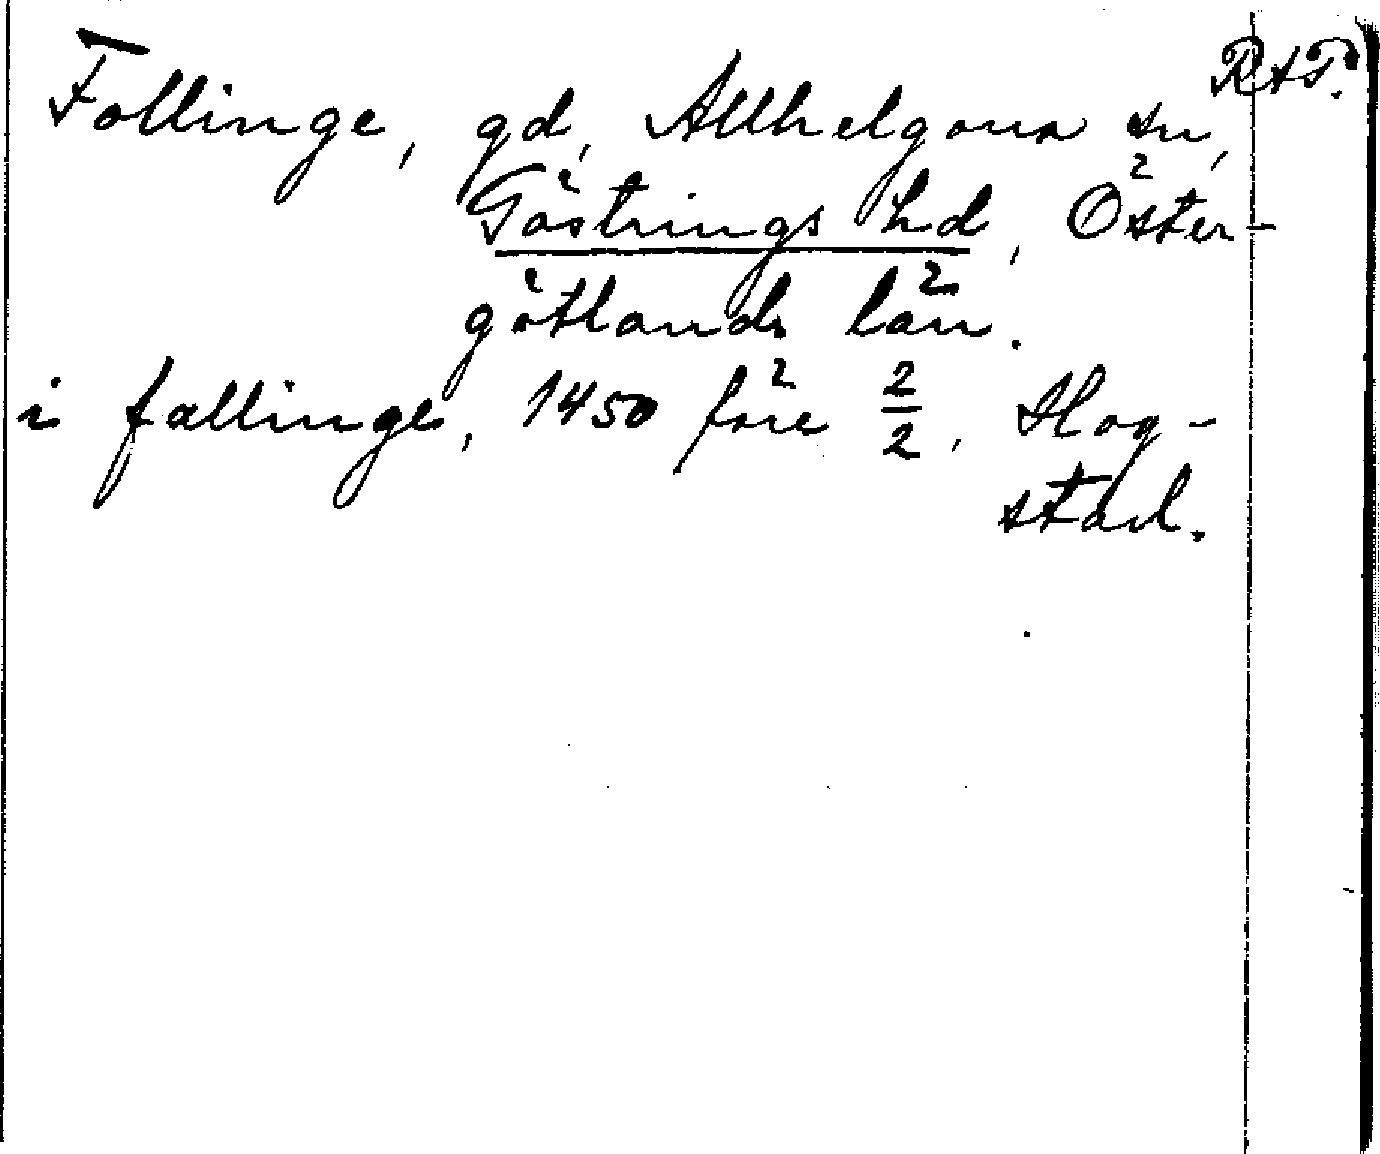 RAP.
Follinge, gd, Allhelgona sn,
Göstrings hd, Öster-
götlands län.
i fallinge, 1450 före 2/2, Hog-
stad.